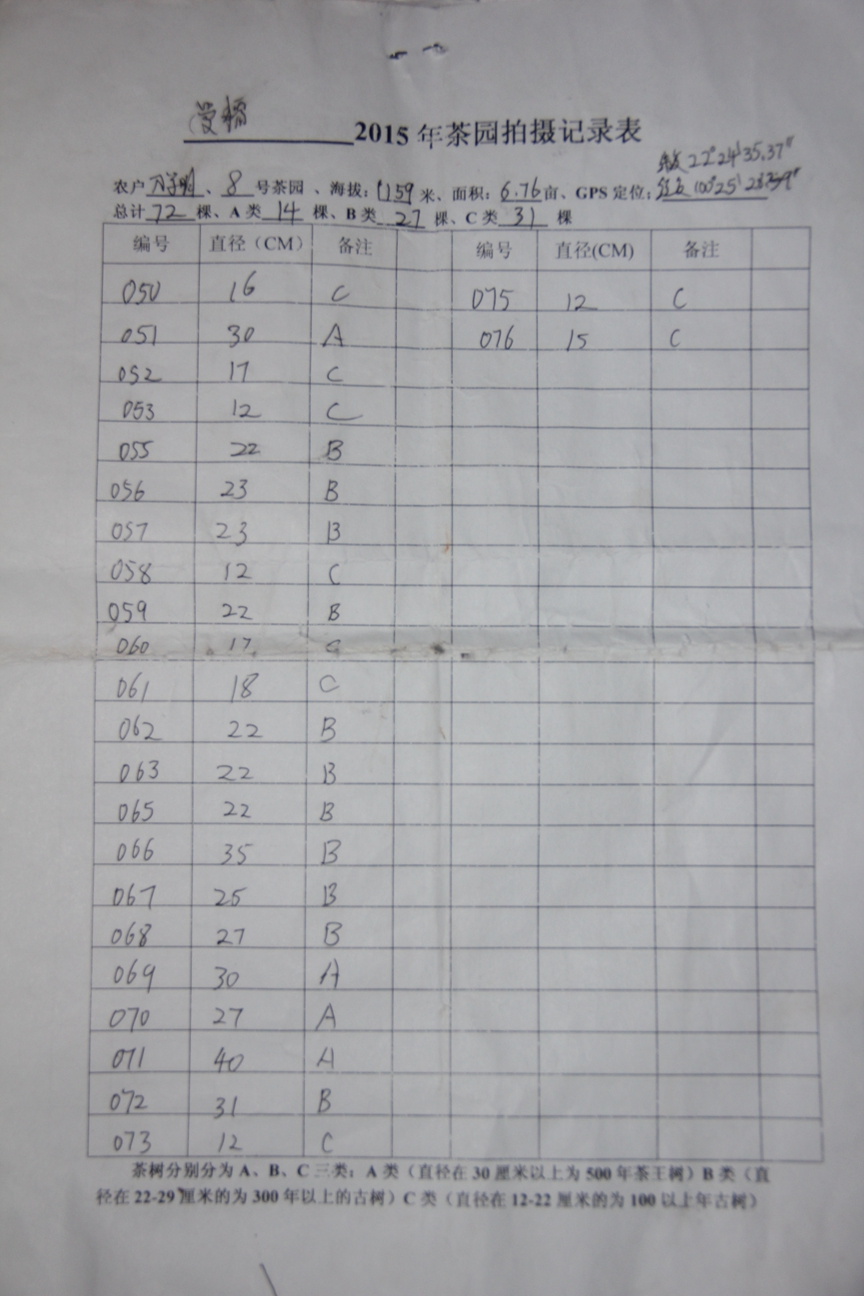 2015年茶园拍摄记录表
22°24'35.37"
农户 、8 号茶园 、海拔:1159米、面积:6.76亩、GPS 定位: 100°25'
总计72棵、A类14棵、B类27棵、C类31棵
编号 直径(CM) 备注 编号 直径(CM) 备注
050 16 C 075 12 C
051 30 A 076 15 C
052 17 C
053 12 C
055 22 B
056 23 B
057 23 B
058 12 C
059 22 B
060 17 C
061 18 C
062 22 B
063 22 B
065 22 B
066 35 B
067 25 B
068 27 B
069 30 A
070 27 A
071 40 A
072 31 B
073 12 C
茶树分别分为A、B、C三类:A类(直径在30厘米以上为500年茶王树)B类(直
径在22-29厘米的为300年以上的古树)C类(直径在12-22厘米的为100以上年古树)